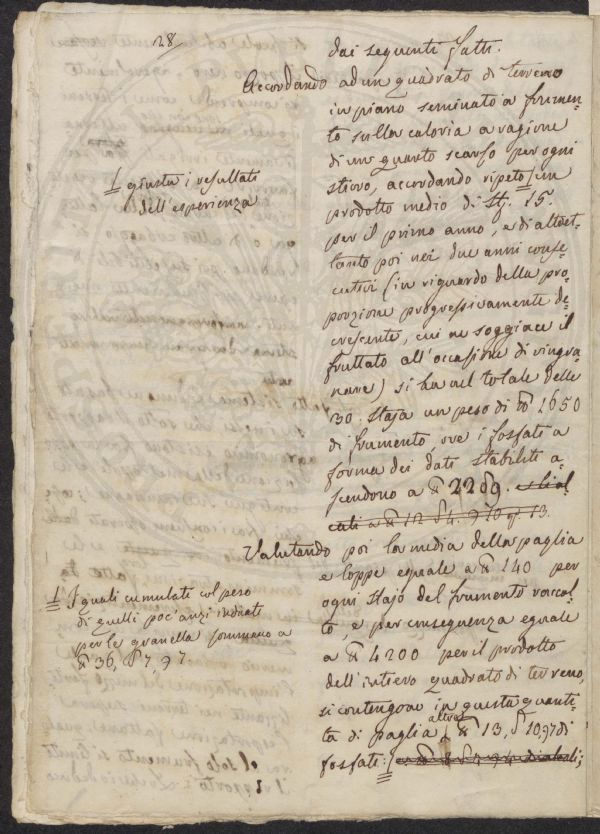 28
dai seguenti fatti.
Accordando ad un quadrato di terreno
in piano seminato a frumen-
to sulla caloria a ragione
di un quarto scarso per ogni
stioro, accordando ripeto / un
prodotto medio di St. 15.
per il primo anno, e di altret-
tanto poi nei due anni conse-
cutivi (in riguardo della pro-
porzione progressivamente de-
crescente, cui ne soggiace il
fruttato all'occasione di ringra-
nare) si ha nel totale delle
30. staja un peso di ℔ 1650
di frumento ove i fosfati a
forma dei dati stabiliti a-
scendono a ℔ 22
Valutando poi la media della paglia
e loppe eguale a ℔ 140 per
ogni stajo del frumento raccol-
to, e per conseguenza eguale
a ℔ 4200 per il prodotto
dell'intiero quadrato di terreno,
si contengono in questa quanti-
tà di paglia altre ℔ 13,
fosfati:
1 giusta i resultati
dell'esperienza
1 I quali cumulati col peso
di quelli poc'anzi indicati
per le granella sommano a
℔ 36,